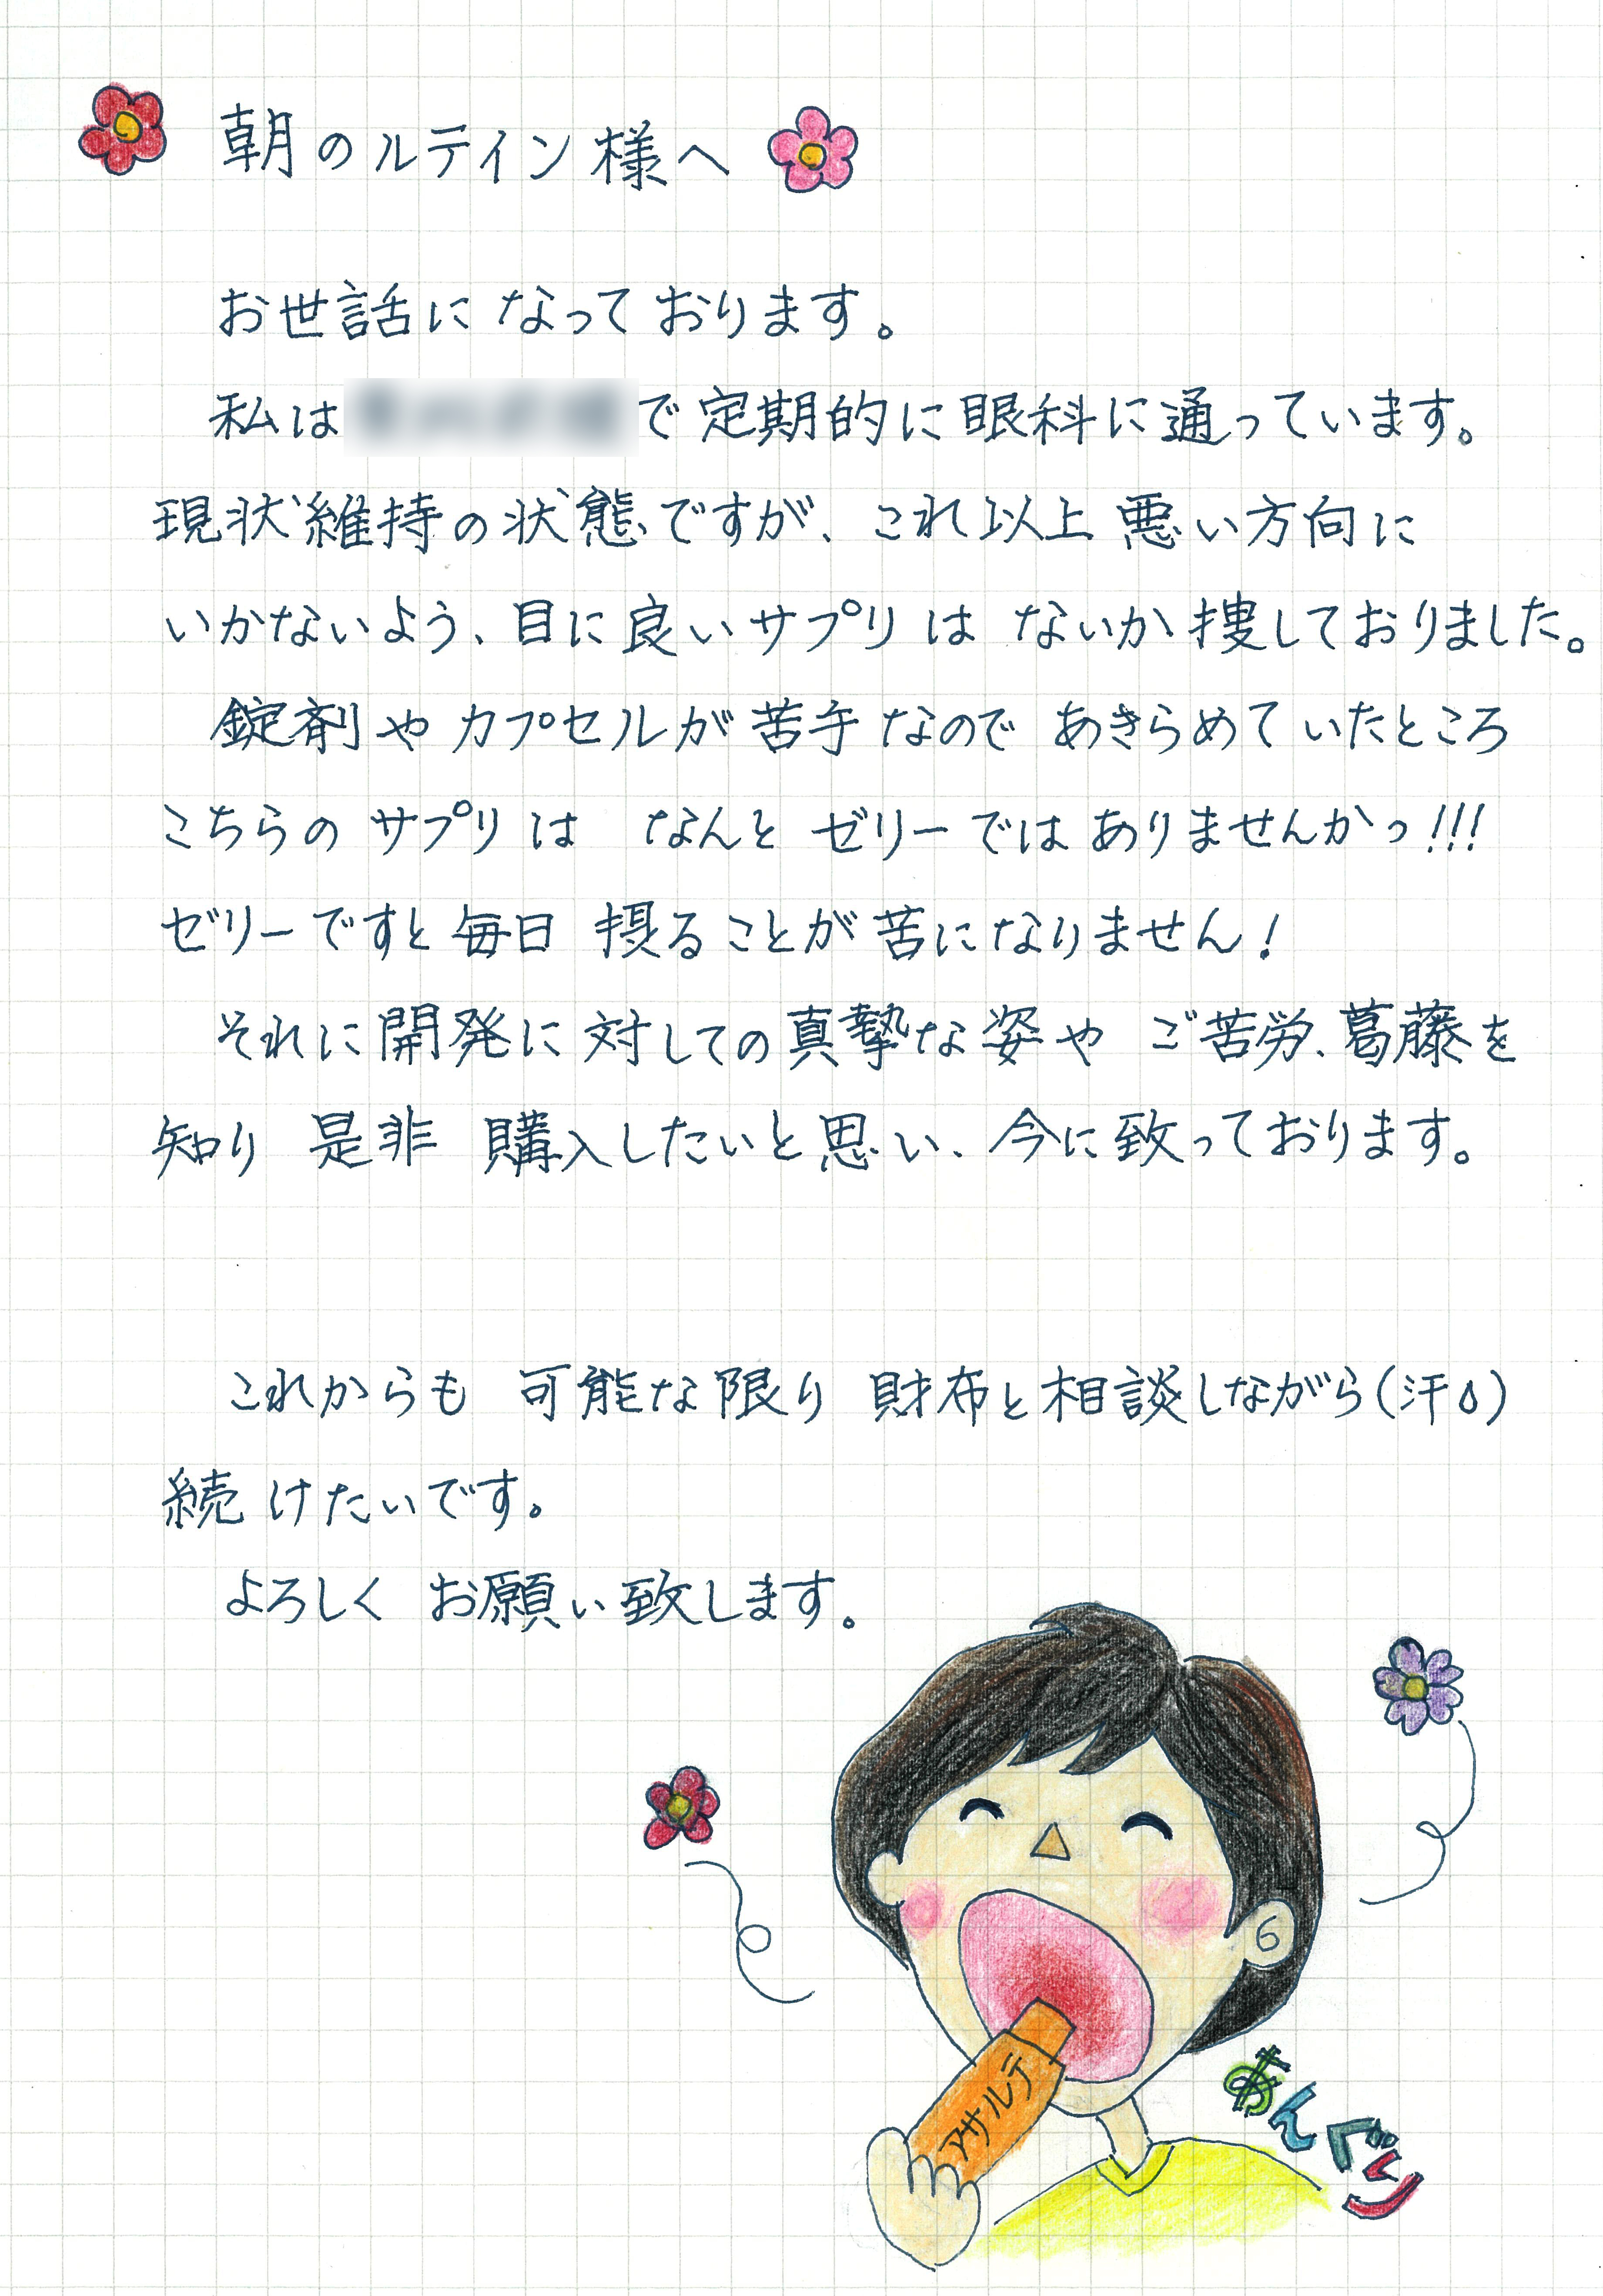 朝のルテイン様へ
お世話になっております。
私は で定期的に眼科に通っています。
現状維持の状態ですが、これ以上悪い方向に
いかないよう、目に良いサプリはないか捜しておりました。
錠剤やカプセルが苦手なのであきらめていたところ
こちらのサプリはなんとゼリーではありませんかっ!!!
ゼリーですと毎日摂ることが苦になりません!
それに開発に対しての真摯な姿やご苦労、葛藤を
知り是非購入したいと思い、今に致っております。
これからも可能な限り財布と相談しながら(汗)
続けたいです。
よろしくお願い致します。
アサルテ